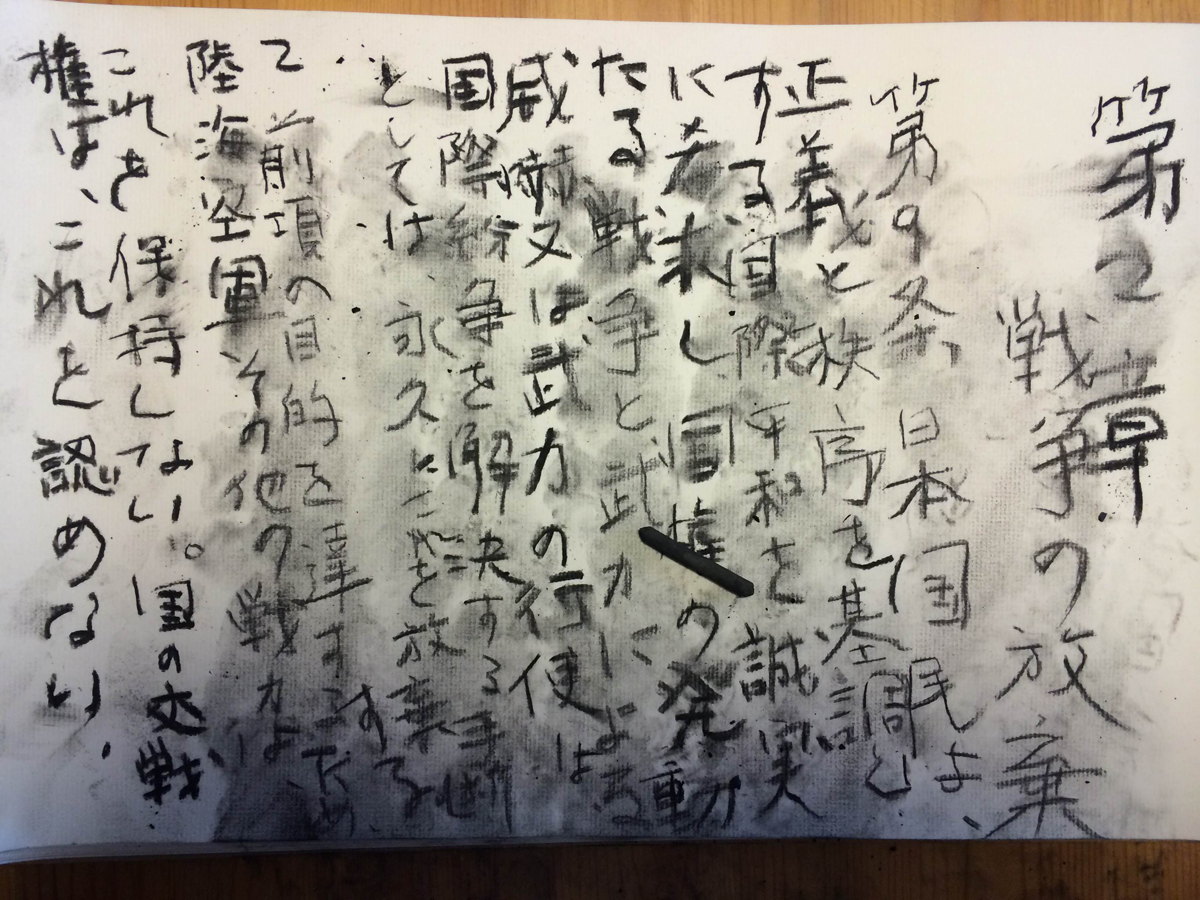 第2章
戦争の放棄
第9条 日本国民は
正義と秩序を基調と
する国際平和を誠実
に希求し国権の発動
たる戦争と武力による
威嚇又は武力の行使は
国際紛争を解決する手断
としては永久にこれを放棄する
2 前項の目的を達するため、
陸海空軍その他の戦力は
これを保持しない。国の交戦
権は、これを認めない、